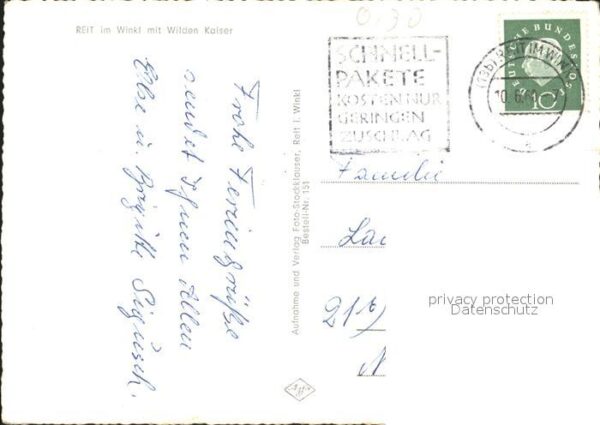 REIT im Winkl mit Wilden Kaiser
Frohe Feriengrüße
sendet Ihnen Allen
Elbe u. Brigitte
Aufnahme und Verlag Foto-Stockklauser, Reit i. Winkl
Bestell-Nr. 151
Agfa
0,30
SCHNELL-
PAKETE
KOSTEN NUR
GERINGEN
ZUSCHLAG
(13b) REIT IM WINKL
10.6.
DEUTSCHE BUNDESPOST
10
Familie
La
21b)
N
privacy protection
Datenschutz